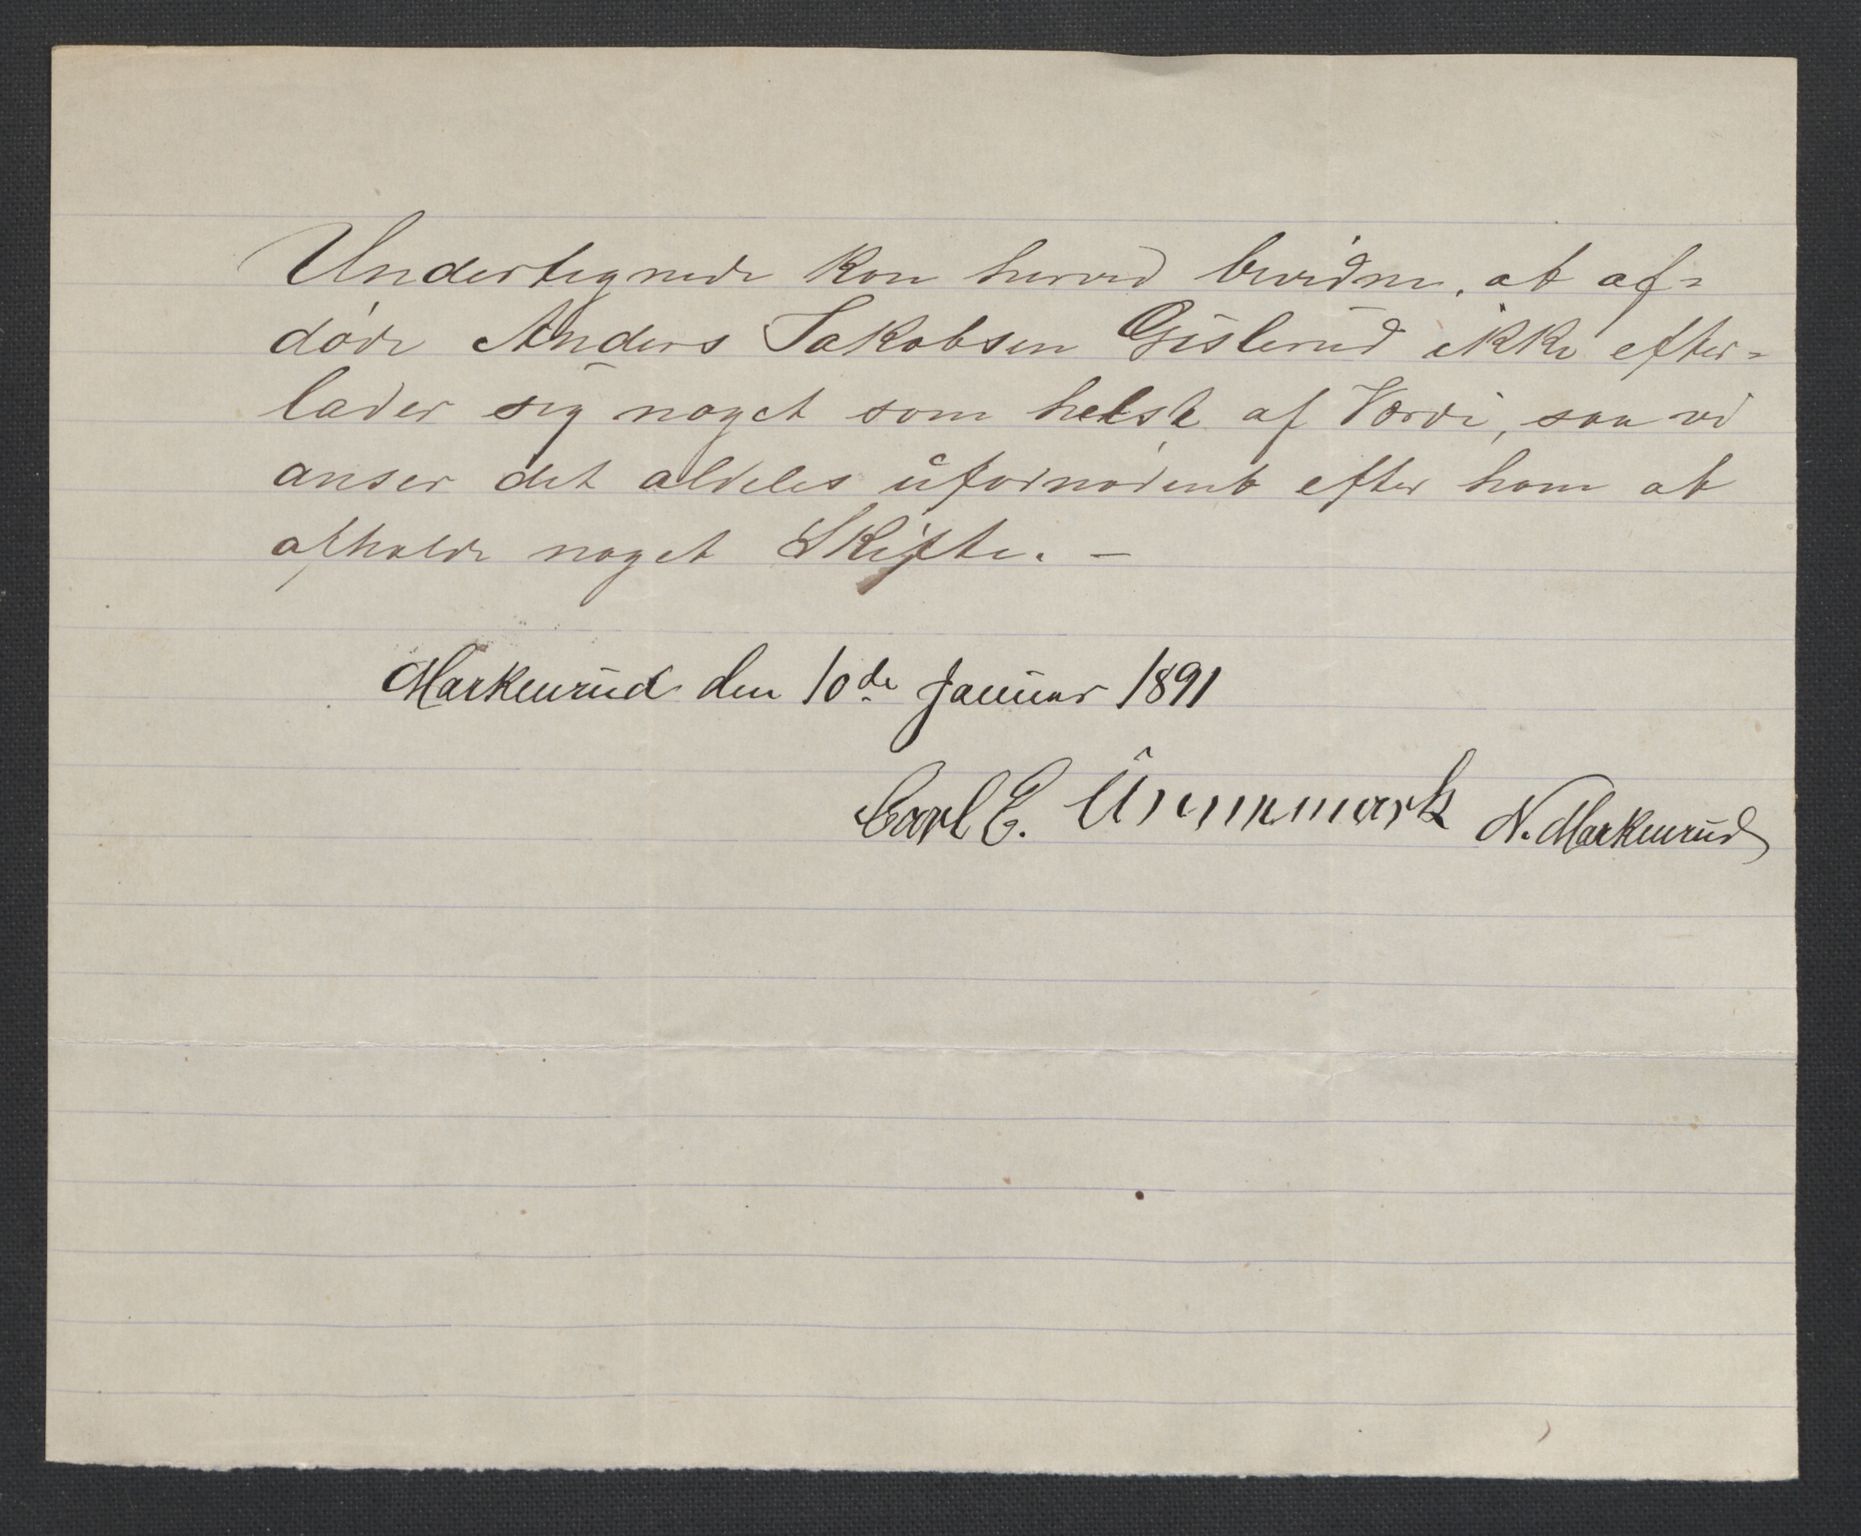 Undertegnede kan herved bevidne, at af=
døde Anders Jakobsen Gislerud ikke efter=
lader sig noget som helst af Værdi, saa vi
anser det aldeles ufornødent efter ham at
afholde noget Skifte. —
Markerud den 10de Januar 1891
Carl E. N. Markerud